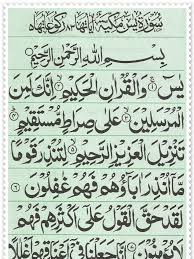 سُورَةُ يٰسٓ مَكِّيَّةٌ
بِسْمِ اللهِ الرَّحْمٰنِ الرَّحِيْمِ
يٰسٓ ۝١ وَالْقُرْاٰنِ الْحَكِيْمِ ۝٢ اِنَّكَ لَمِنَ
الْمُرْسَلِيْنَ ۝٣ عَلٰى صِرَاطٍ مُّسْتَقِيْمٍ ۝٤
تَنْزِيْلَ الْعَزِيْزِ الرَّحِيْمِ ۝٥ لِتُنْذِرَ قَوْمًا
مَّآ اُنْذِرَ اٰبَآؤُهُمْ فَهُمْ غٰفِلُوْنَ ۝٦
لَقَدْ حَقَّ الْقَوْلُ عَلٰٓى اَكْثَرِهِمْ فَهُمْ
لَا يُؤْمِنُوْنَ ۝٧ اِنَّا جَعَلْنَا فِيْٓ اَعْنَاقِهِمْ اَغْلٰلًا